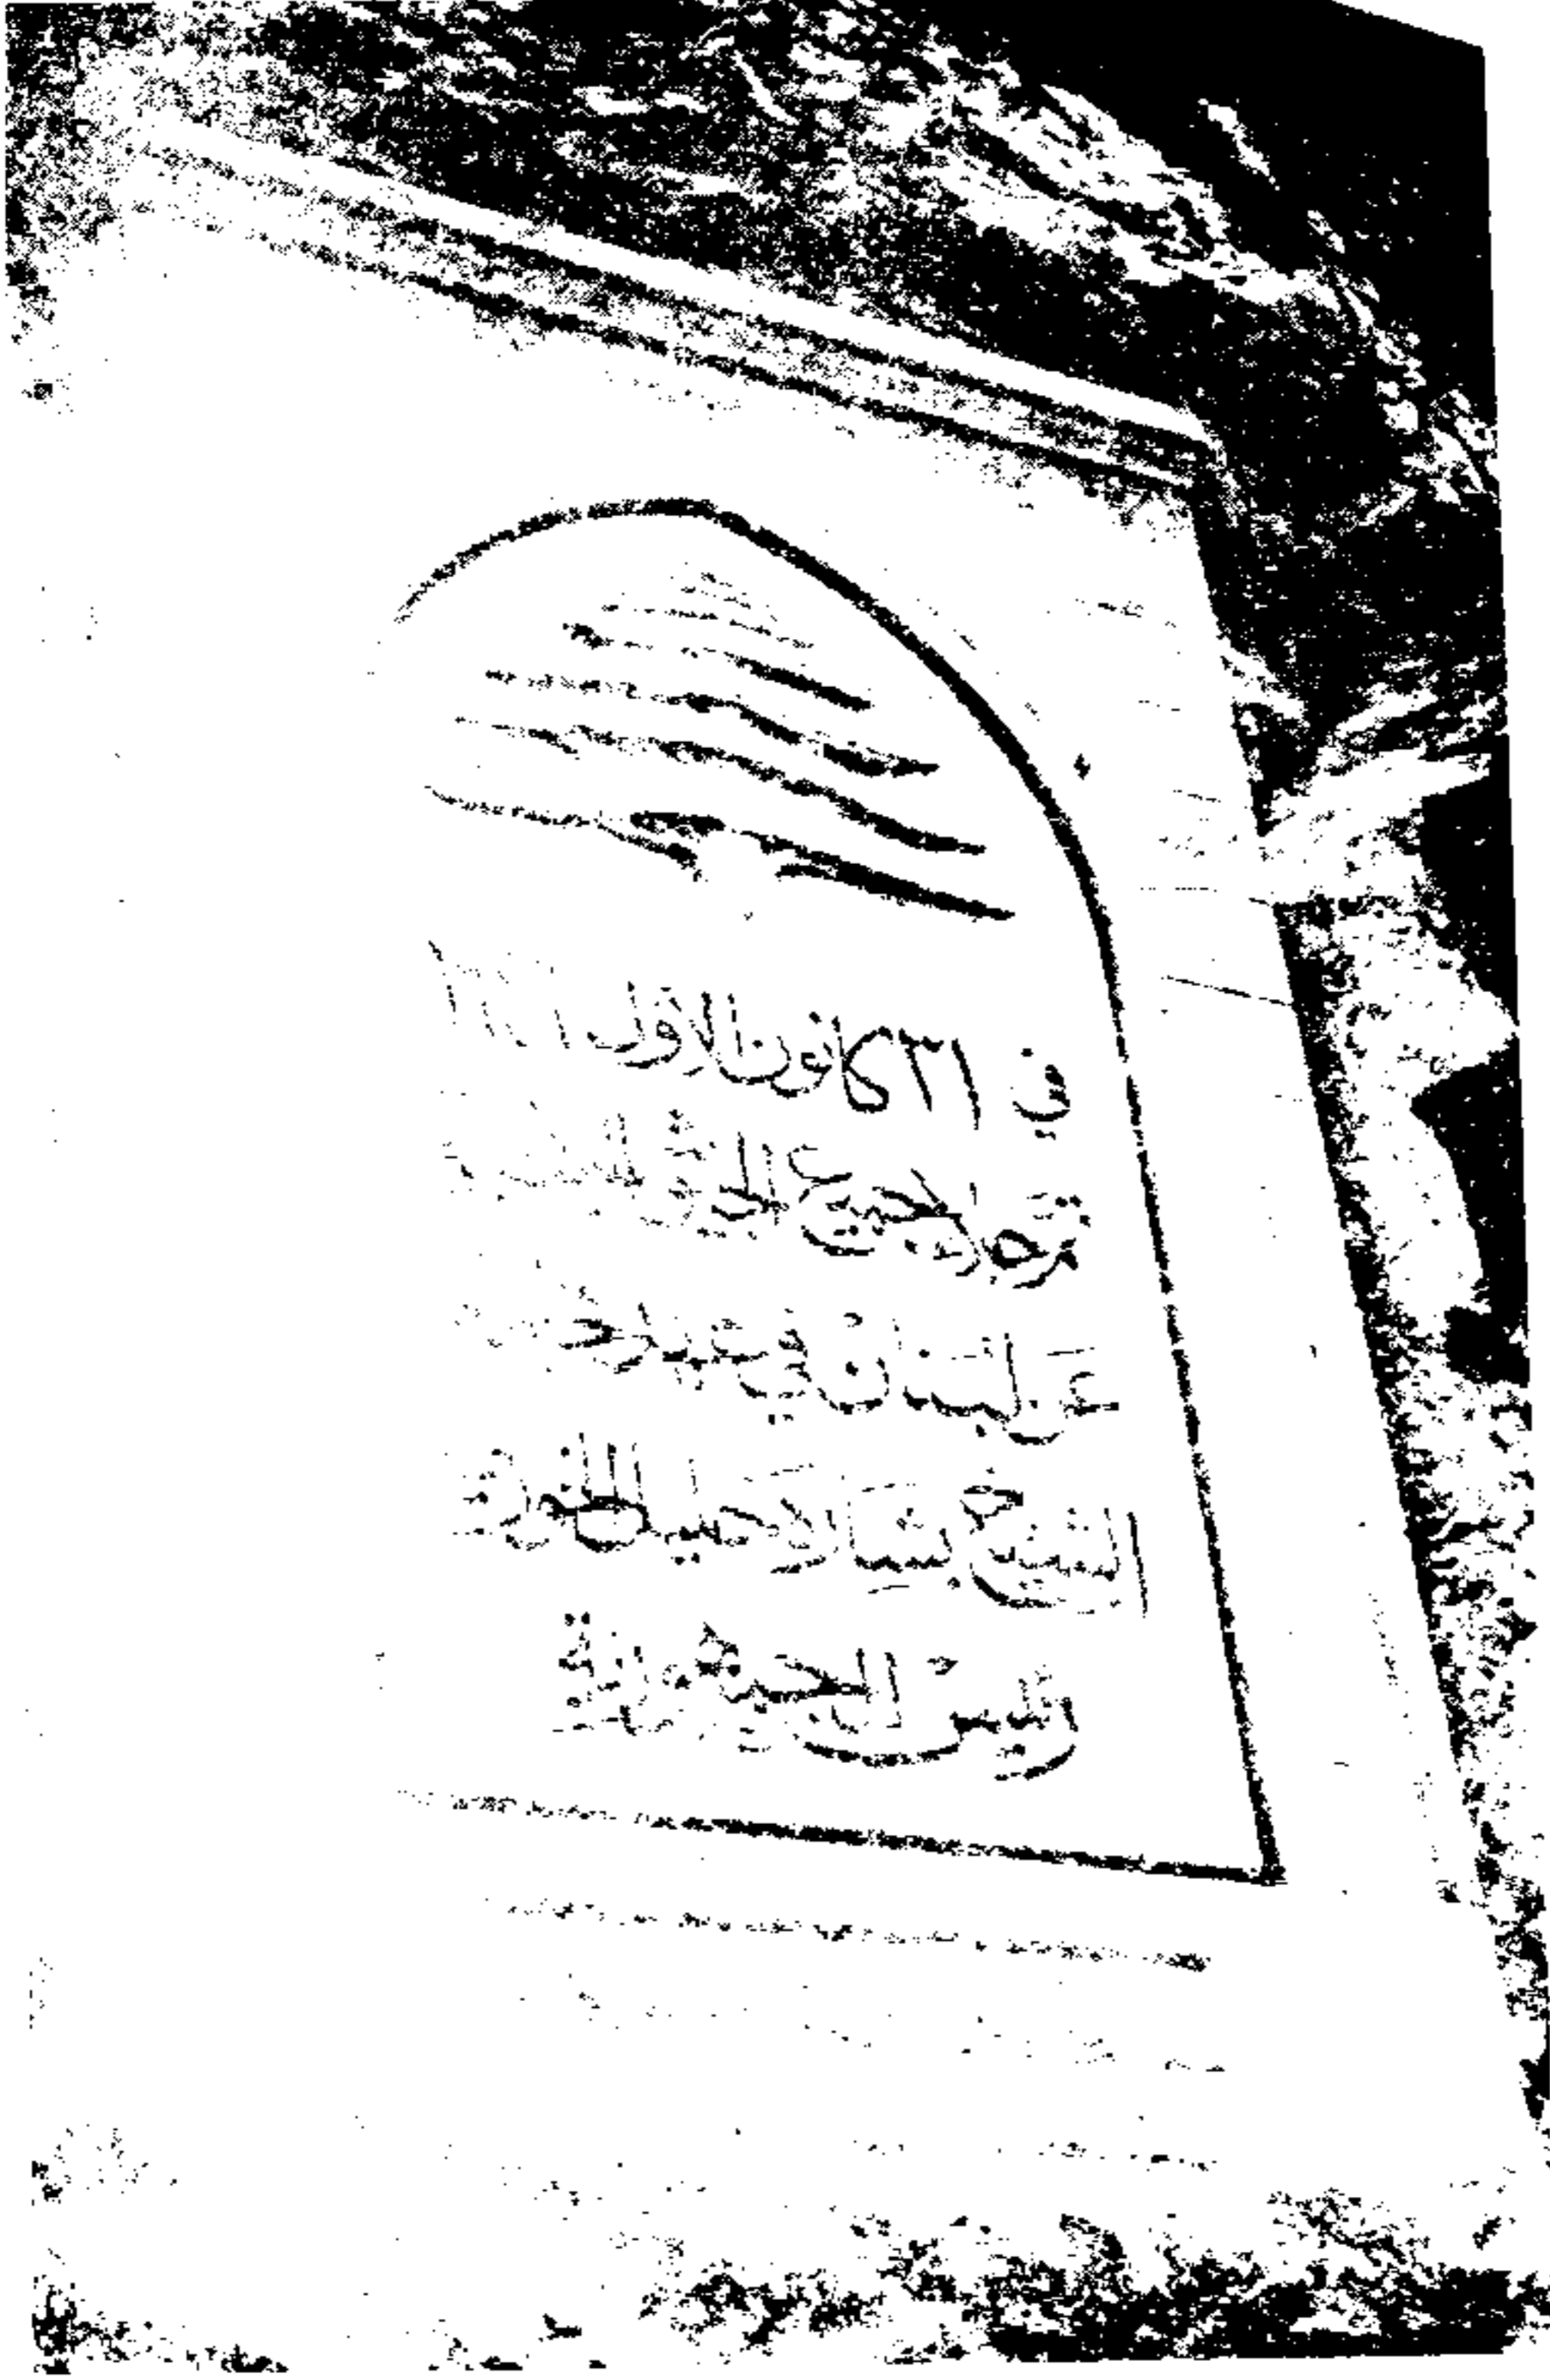 في ٣١ كانون الاول ١٩٤٦
تم جلاء جميع الجيوش الأجنبية
عن لبنان في عهد
الشيخ بشارة خليل الخوري
رئيس الجمهورية